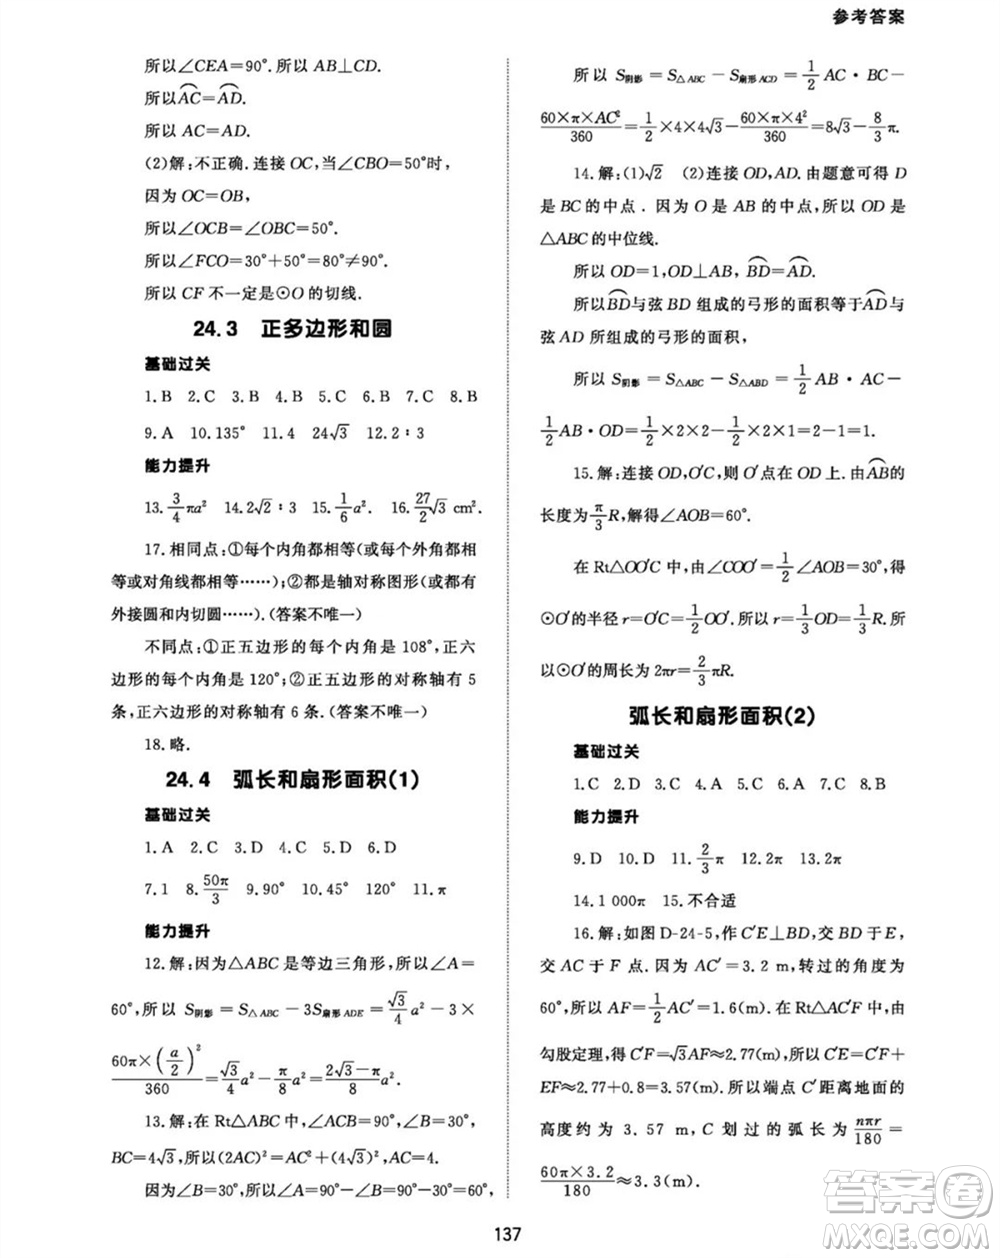 参考答案
所以∠CEA=90°.所以 AB⊥CD.
所以⌒AC=⌒AD.
所以 AC=AD.
(2)解:不正确.连接 OC,当∠CBO=50°时,
因为 OC=OB,
所以∠OCB=∠OBC=50°.
所以∠FCO=30°+50°=80°≠90°.
所以 CF 不一定是⊙O 的切线.
24.3 正多边形和圆
基础过关
1.B 2.C 3.B 4.B 5.D 6.C 7.C 8.B
9.A 10.135° 11.4 24√3 12.2∶3
能力提升
13.3/4πa² 14.2√2∶3 15.1/6a² 16.27/2√3 cm².
17.相同点:①每个内角都相等(或每个外角都相
等或对角线都相等……);②都是轴对称图形(或都有
外接圆和内切圆……).(答案不唯一)
不同点:①正五边形的每个内角是 108°,正六
边形的每个内角是 120°;②正五边形的对称轴有 5
条,正六边形的对称轴有 6 条.(答案不唯一)
18.略.
24.4 弧长和扇形面积(1)
基础过关
1.A 2.C 3.D 4.C 5.D 6.D
7.1 8.50π/3 9.90° 10.45° 120° 11.π
能力提升
12.解:因为△ABC 是等边三角形,所以∠A=
60°,所以 S阴影=S△ABC−3S扇形 ADE=√3/4a²−3×
60π×(a/2)²/360=√3/4a²−π/8a²=(2√3−π)/8a².
13.解:在 Rt△ABC 中,∠ACB=90°,∠B=30°,
BC=4√3,所以(2AC)²=AC²+(4√3)².所以 AC=4.
因为∠B=30°,∠ACB=90°,所以∠A=60°,
所以 S阴影=S△ABC−S扇形 ACD=1/2AC·BC−
60×π×AC²/360=1/2×4×4√3−60×π×4²/360=8√3−8/3π.
14.解:(1)√2 (2)连接 OD,AD.由题意可得 D
是 BC 的中点.因为 O 是 AB 的中点,所以 OD 是
△ABC 的中位线.
所以 OD=1,OD⊥AB,⌒BD=⌒AD.
所以⌒BD与弦 BD 组成的弓形的面积等于⌒AD与
弦 AD 所组成的弓形的面积,
所以 S阴影=S△ABC−S△ABD=1/2AB·AC−
1/2AB·OD=1/2×2×2−1/2×2×1=2−1=1.
15.解:连接 OD,O′C,则 O′点在 OD 上.由⌒AB的
长度为π/3R,解得∠AOB=60°.
在 Rt△OO′C 中,由∠COO′=1/2∠AOB=30°,得
⊙O′的半径 r=O′C=1/2OO′.所以 r=1/3OD=1/3R.所
以⊙O′的周长为 2πr=2/3πR.
弧长和扇形面积(2)
基础过关
1.C 2.D 3.C 4.B 5.C 6.A 7.C 8.B
能力提升
9.D 10.D 11.2/3π 12.2π 13.2π
14.1 000π 15.不合适
16.解:如图 D-24-5,作 C′E⊥BD,交 BD于 E,
交 AC 于 F 点.因为 AC′=3.2 m,转过的角度为
60°,所以 AF=1/2AC′=1.6(m).在 Rt△AC′F 中,由
勾股定理,得 C′F=√3AF≈2.77(m).所以 C′E=C′F+
EF≈2.77+0.8=3.57(m).所以端点 C′距离地面的
高度约为 3.57 m,C 划过的弧长为nπr/180=
60π×3.2/180≈3.3(m).
137
答案卷
MXQE.COM